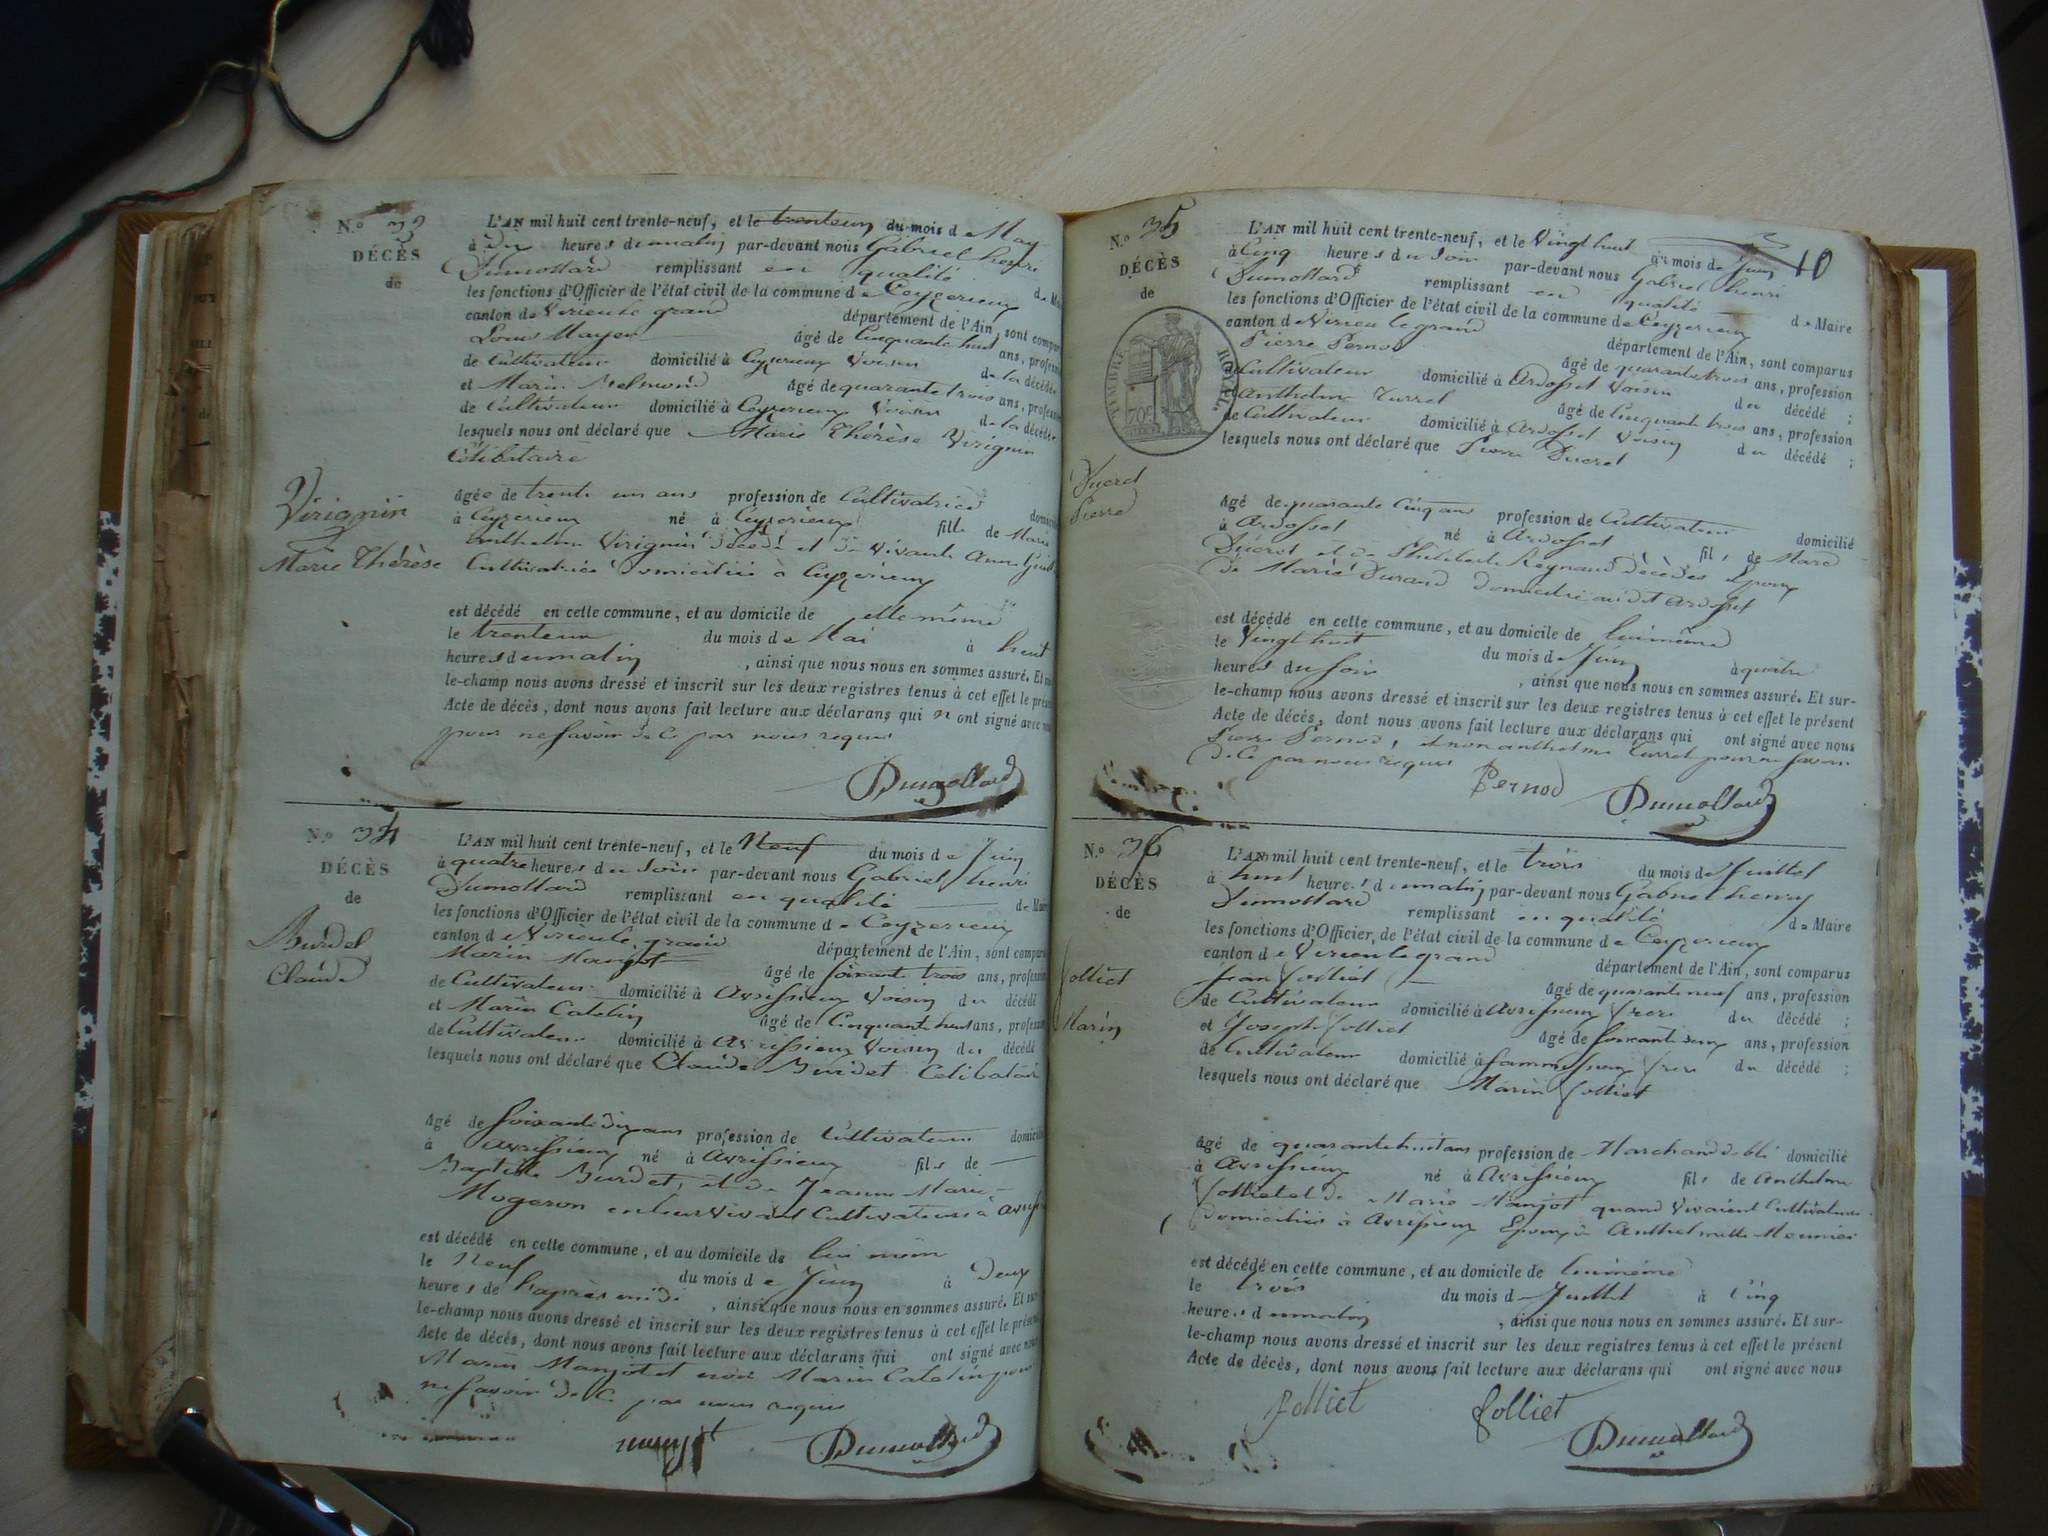 N.o 33
DÉCÈS
de
Virignin
Marie Thérèse
L'AN mil huit cent trente-neuf, et le trenteun du mois de May
à dix heures du matin par-devant nous Gabriel henri
Dumollard remplissant en qualité de Maire
les fonctions d'Officier de l'état civil de la commune de Ceyzerieux
canton de Virieu le grand département de l'Ain, sont comparus
Louis Mayer âgé de Cinquante huit ans, profession
de Cultivateur domicilié à Ceyzerieux Voisin de la décédée
et Marin âgé de quarante trois ans, profession
de Cultivateur domicilié à Ceyzerieux Voisin de la décédée
lesquels nous ont déclaré que Marie Thérèse Virignin
Célibataire
âgée de trente un ans profession de Cultivatrice domicilié
à Ceyzerieux né à Ceyzerieux fille de Marie
anthelme Virignin décédé et de vivante Anne
Cultivatrice domiciliée à Ceyzerieux
est décédé en cette commune, et au domicile de elle même
le trenteun du mois de Mai à huit
heures du matin, ainsi que nous nous en sommes assuré. Et sur-
le-champ nous avons dressé et inscrit sur les deux registres tenus à cet effet le présent
Acte de décès, dont nous avons fait lecture aux déclarans qui n ont signé avec nous
pour ne savoir de ce par nous requis
Dumollard
N.o 34
DÉCÈS
de
Burdet
Claude
L'AN mil huit cent trente-neuf, et le Neuf du mois de Juin
à quatre heures du Soir par-devant nous Gabriel henri
Dumollard remplissant en qualité de Maire
les fonctions d'Officier de l'état civil de la commune de Ceyzerieux
canton de Virieu le grand département de l'Ain, sont comparus
Marin Manjot âgé de soixante trois ans, profession
de Cultivateur domicilié à Avrissieux Voisin du décédé
et Marin Catelin âgé de Cinquante huit ans, profession
de Cultivateur domicilié à Avrissieux Voisin du décédé
lesquels nous ont déclaré que Claude Burdet Célibataire
âgé de soixante dix ans profession de Cultivateur domicilié
à Avrissieux né à Avrissieux fils de
Baptiste Burdet, et de Jeanne Marie
Mogeron en leur vivant Cultivateurs à
est décédé en cette commune, et au domicile de lui même
le Neuf du mois de Juin à Deux
heures de l'après midi, ainsi que nous nous en sommes assuré. Et sur-
le-champ nous avons dressé et inscrit sur les deux registres tenus à cet effet le présent
Acte de décès, dont nous avons fait lecture aux déclarans qui ont signé avec nous
Marin Manjot et non Marin Catelin pour
ne savoir de ce par nous requis
manjot Dumollard
10
N.o 35
DÉCÈS
de
TIMBRE ROYAL
70c
Ducret
Pierre
L'AN mil huit cent trente-neuf, et le Vingt huit du mois de Juin
à Cinq heures du Soir par-devant nous Gabriel henri
Dumollard remplissant en qualité de Maire
les fonctions d'Officier de l'état civil de la commune de Ceyzerieux
canton de Virieu le grand département de l'Ain, sont comparus
Pierre Pernod âgé de quarante trois ans, profession
Cultivateur domicilié à Ardosset Voisin du décédé ;
Anthelme Turrel âgé de Cinquante trois ans, profession
de Cultivateur domicilié à Ardosset Voisin du décédé ;
lesquels nous ont déclaré que Pierre Ducret
âgé de quarante Cinq ans profession de Cultivateur domicilié
à Ardosset né à Ardosset fils de Marc
Ducret et de Philiberte Reynaud décédés Epoux
de Marie Durand domicilié audit Ardosset
est décédé en cette commune, et au domicile de lui même
le Vingt huit du mois de Juin à quatre
heures du Soir, ainsi que nous nous en sommes assuré. Et sur-
le-champ nous avons dressé et inscrit sur les deux registres tenus à cet effet le présent
Acte de décès, dont nous avons fait lecture aux déclarans qui ont signé avec nous
Pierre Pernod, et non anthelme Turrel pour ne savoir
de ce par nous requis
Pernod Dumollard
N.o 36
DÉCÈS
de
Jolliet
Marin
L'AN mil huit cent trente-neuf, et le trois du mois de Juillet
à huit heures du matin par-devant nous Gabriel henry
Dumollard remplissant en qualité de Maire
les fonctions d'Officier de l'état civil de la commune de Ceyzerieux
canton de Virieu le grand département de l'Ain, sont comparus
Jean Jolliet âgé de quarante neuf ans, profession
de Cultivateur domicilié à Avrissieux frère du décédé ;
et Joseph Jolliet âgé de soixante deux ans, profession
de Cultivateur domicilié à frère du décédé ;
lesquels nous ont déclaré que Marin Jolliet
âgé de quarante huit ans profession de Marchand de blé domicilié
à Avrissieux né à Avrissieux fils de Anthelme
Jolliet et de Marie Manjot quand Vivaient Cultivateurs
domiciliés à Avrissieux Epoux Anthelmette Meunier
est décédé en cette commune, et au domicile de lui même
le trois du mois de Juillet à Cinq
heures du matin, ainsi que nous nous en sommes assuré. Et sur-
le-champ nous avons dressé et inscrit sur les deux registres tenus à cet effet le présent
Acte de décès, dont nous avons fait lecture aux déclarans qui ont signé avec nous
Jolliet Jolliet
Dumollard